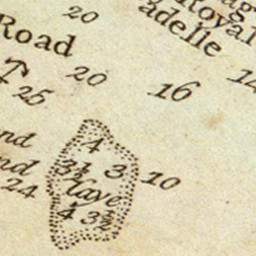 20
Royal
adelle
Road
20
16
14
25
4
3½ 3
10
Caye
24
4 3½